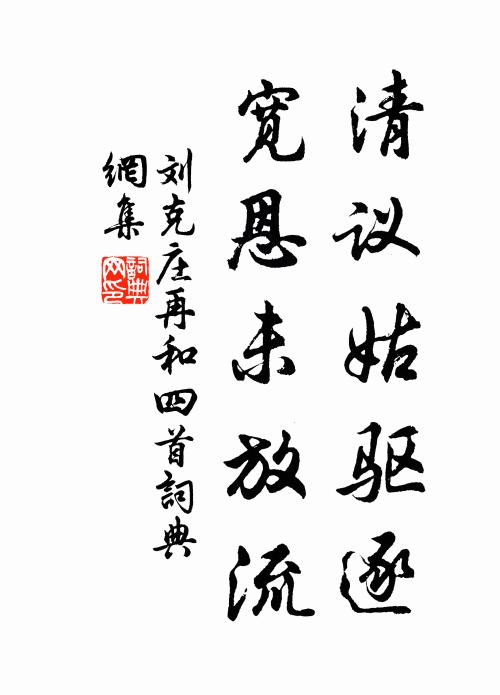 清议姑驱逐
宽恩未放流
刘克庄再和四首詞典
網集
詞典網印